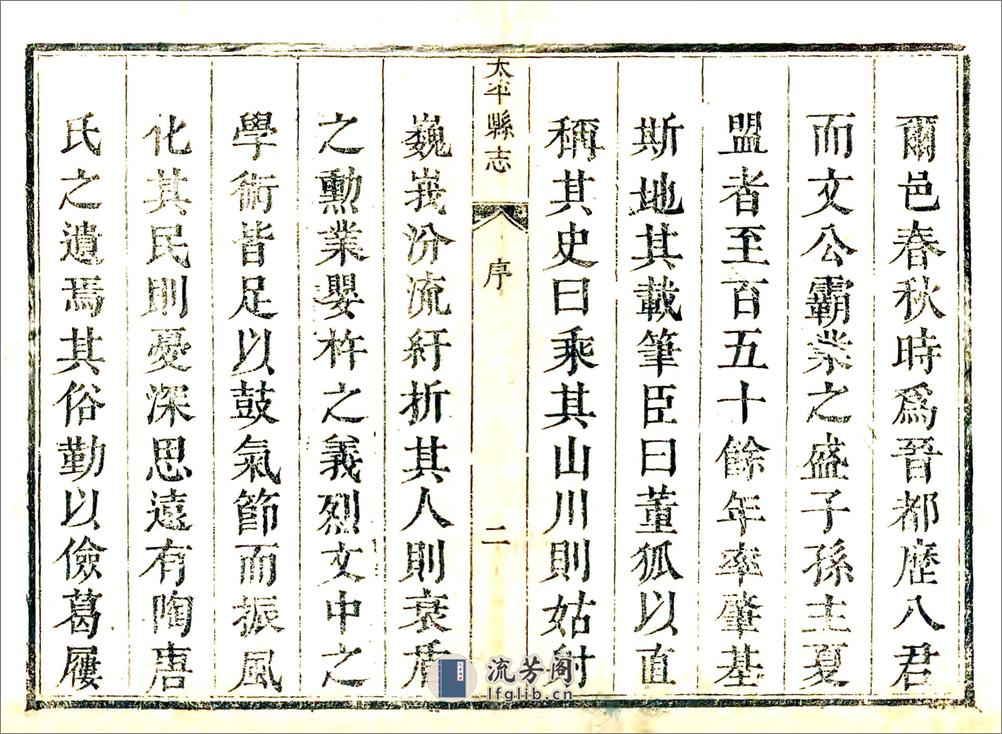 爾邑春秋時爲晉都歷八君
而文公霸業之盛子孫主夏
盟者至百五十餘年率肇基
斯地其載筆臣曰董狐以直
稱其史曰乘其山川則姑射
太平縣志
序
二
巍峩汾流紆折其人則衰盾
之勳業嬰杵之義烈文中之
學術皆足以鼓氣節而振風
化其民則憂深思遠有陶唐
氏之遺焉其俗勤以儉葛屨
流芳阁
lfglib.cn